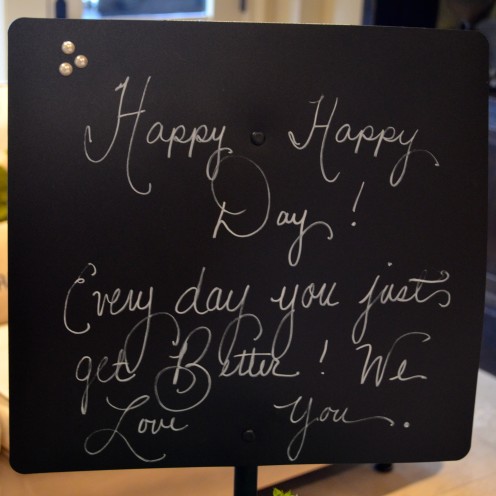 Happy Happy
Day!
Every day you just
get Better! We
Love You.